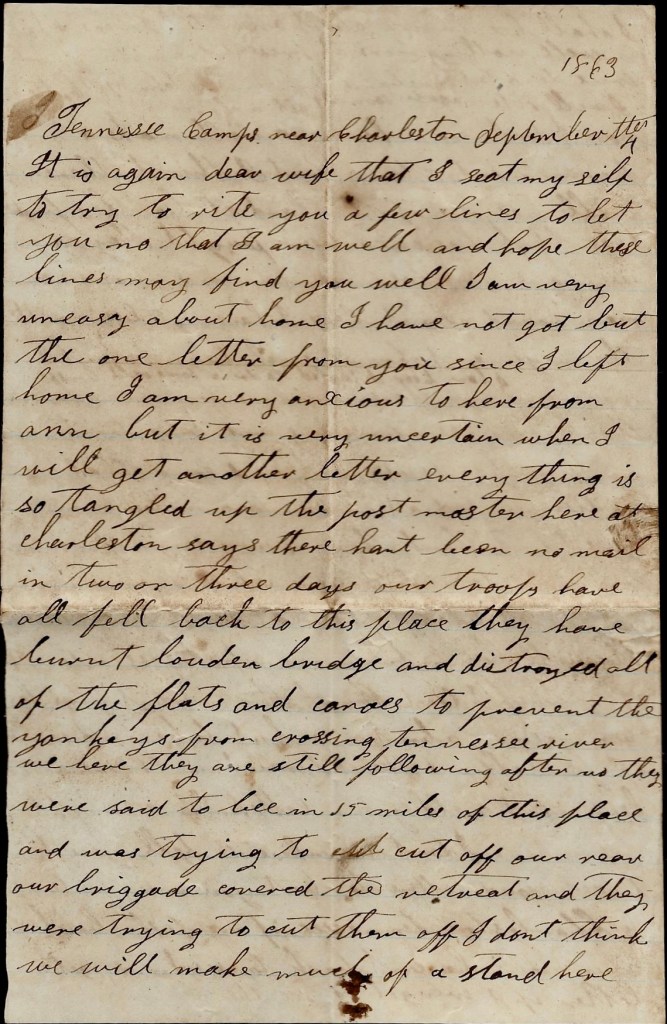 1863
Tennessee Camps near Charleston September the 4
It is again dear wife that I seat my self
to try to rite you a few lines to let
you no that I am well and hope these
lines may find you well I am very
uneasy about home I have not got but
the one letter from you since I left
home I am very anxious to here from
ann but it is very uncertain when I
will get another letter every thing is
so tangled up the post master here at
charleston says there hant been no mail
in two or three days our troops have
all fell back to this place they have
burnt louden bridge and distroyed all
of the flats and canoes to prevent the
yankeys from crossing tennessee river
we here they are still following after us they
were said to bee in 15 miles of this place
and was trying to cut off our rear
our briggade covered the retreat and they
were trying to cut them off I dont think
we will make much of a stand here